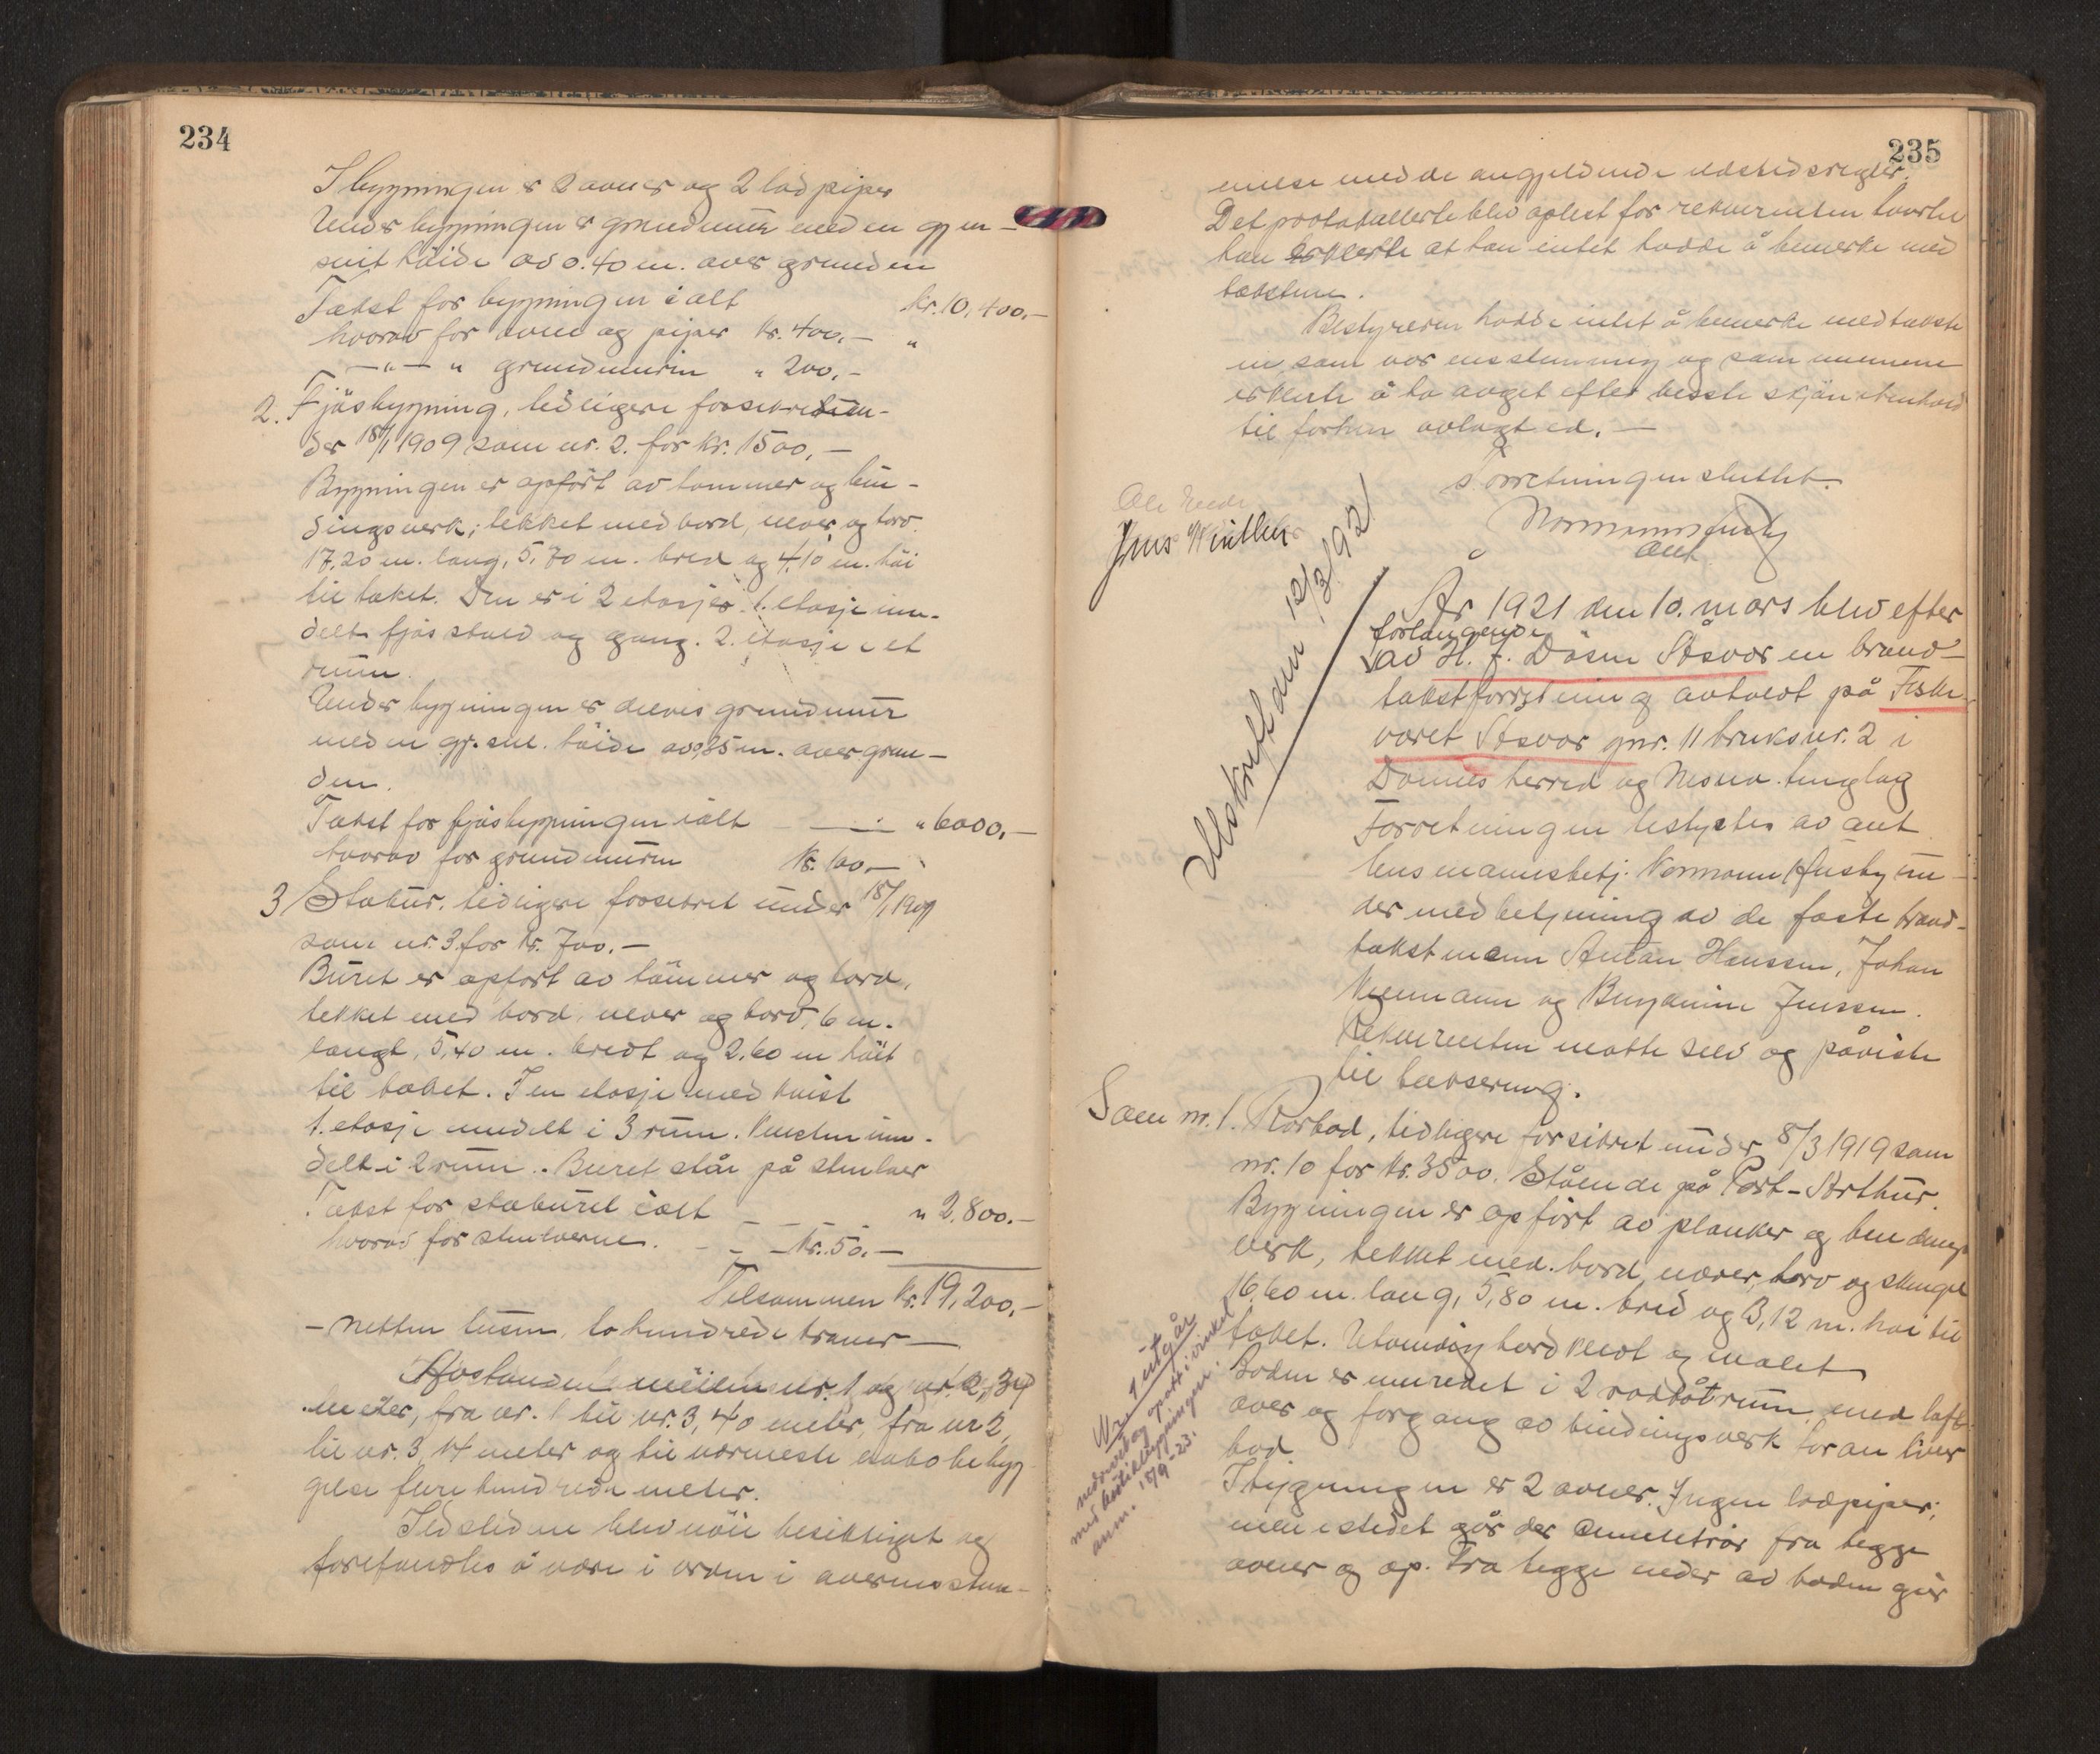 234
I bygningen er 2 ovner og 2 lodpiper
Under bygningen er grundmur med en gjen-
snit høide av 0.40 m. over grunden
Takst for bygningen i alt kr. 10,400.-
hvorav for ovne og piper kr. 400.- "
-"- " grundmuren " 200,-
2. Fjøsbygning, tidligere forsikret un-
der 18/1 1909 som nr. 2. for kr. 1500,-
Bygningen er opført av tømmer og bin-
dingsverk; tekket med bord, never og torv.
17,20 m. lang, 5,70 m. bred og 4,10 m. høi
til taket. Den er i 2 etasjer. 1. etasje inn-
delt fjøs stald og gang. 2. etasje i et
rum.
Under bygningen er delvis grundmur
med en gj. snt. høide av 0,35 m. over grun-
den.
Takst for fjøsbygningen ialt " 6000,-
hvorav for grundmuren kr. 100,-
3 Stabur, tidligere forsikret under 18/1 1909
som nr. 3 for kr. 700.-
Buret er opført av tømmer og bord,
tekket med bord, never og torv, 6 m.
langt, 5,40 m. bredt og 2.60 m høit
til taket. I en etasje med kvist
1. etasje inndelt i 3 rum. Kvisten inn-
delt i 2 rum. Buret står på stenlaer
Takst for staburet ialt " 2,800.-
hvorav for stenlaerne. kr. 50.-
Tilsammen kr. 19,200,-
- nitten tusen, to hundrede kroner -
Avstanden mellem nr. 1 og nr. 2, 34
meter, fra nr. 1 til nr. 3, 40 meter, fra nr 2,
til nr. 3, 14 meter og til nærmeste nabobebyg-
gelse flere hundrede meter.
Ildstedene blev nøie besiktiget og
forefandtes å være i orden i overensstem-
235
melse med de angjeldende ildstedsregler.
Det protokollerte blev oplest for rekvirenten hvortil
han erklærte at han intet hadde å bemerke med
taksten.
Bestyreren hadde intet å bemerke med takst-
en som var enstemmig og som mennene
erklærte å ha avgit efter beste skjøn i henhold
til forhen avlagt ed. -
Forretningen sluttet.
Normann Husby
Jens Winther
Utskrift den 12/3 1921
År 1921 den 10. mars blev efter
forlangende
av H. J. Døsen Åsvær en brand-
takstforretning avholdt på Fiske-
været Åsvær gnr. 11 bruksnr. 2 i
Dønnes herred og Nesna tinglag
Forretningen bestyrtes av aut.
lensmannsbetj. Normann Husby un-
der medbetjening av de faste brand-
takstmenn Anton Hanssen, Johan
og Benjamin Jenssen.
Rekvirenten møtte selv og påviste
til taksering.
Som nr. 1. Rorbod, tidligere forsikret under 8/3 1919 som
nr. 10 for kr. 3500. Stående på Port-Arthur.
Bygningen er opført av planker og bindings-
verk, tekket med bord, never, torv og
16,60 m. lang, 5,80 m. bred og 3,12 m. høi til
taket. Utvendig bordklædt og malet
Boden er innredet i 2 rorbøtrum med loft
over og forgang av bindingsverk foran hver
bod
I bygningen er 2 ovner. Ingen lodpiper;
men istedet går der rør fra begge
ovner og op. Fra begge ender av boden går
Nr. 1 utgår
nedrevet og opsatt i
med
anm. 15/9-23.